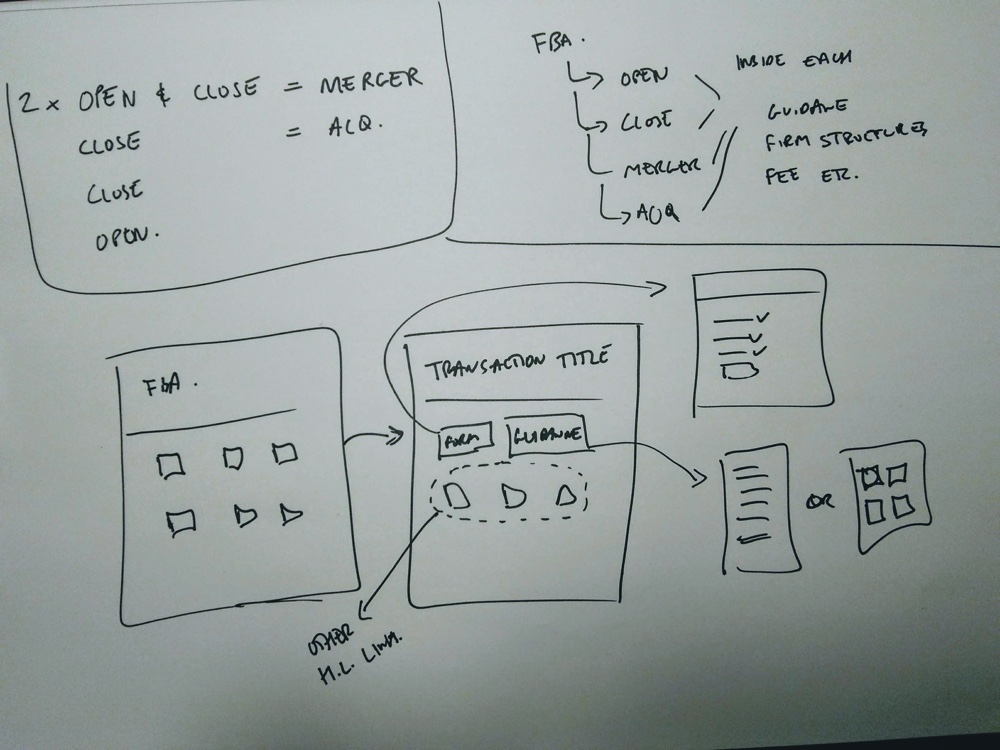 2 x OPEN & CLOSE = MERGER
CLOSE = ACQ.
CLOSE
OPEN.
FBA.
OPEN
CLOSE
MERGER
ACQ
INSIDE EACH
GUIDANE
FIRM STRUCTURES
FEE ETC.
FBA.
TRANSACTION TITLE
FORM
GUIDANCE
OR
OTHER
H.L. LINK.